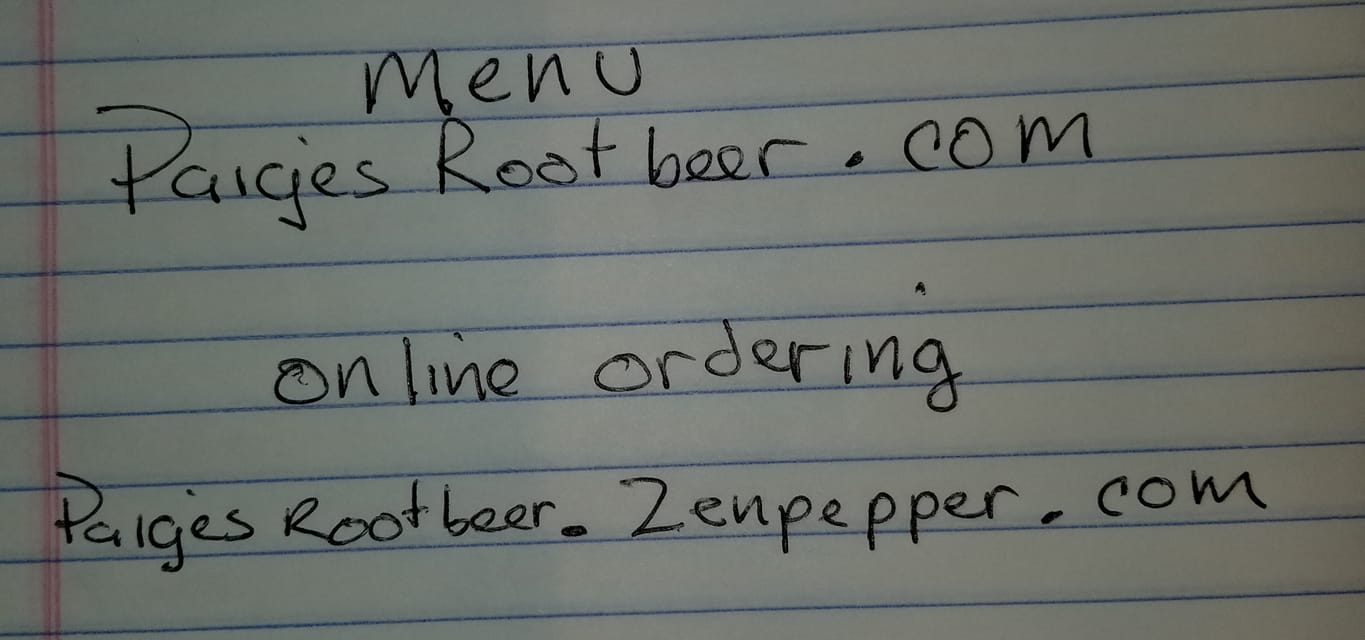 Menu
Paiges Rootbeer.com
online ordering
Paiges Rootbeer.Zenpepper.com